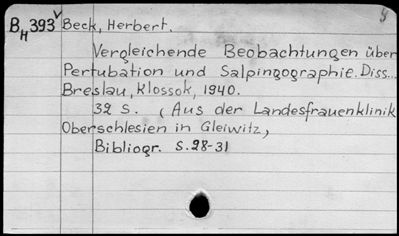 B_H 393 Beck, Herbert.
Vergleichende Beobachtungen über
Pertubation und Salpingographie. Diss...
Breslau, Klossok, 1940.
32 S. (Aus der Landesfrauenklinik
Oberschlesien in Gleiwitz)
Bibliogr. S.28-31